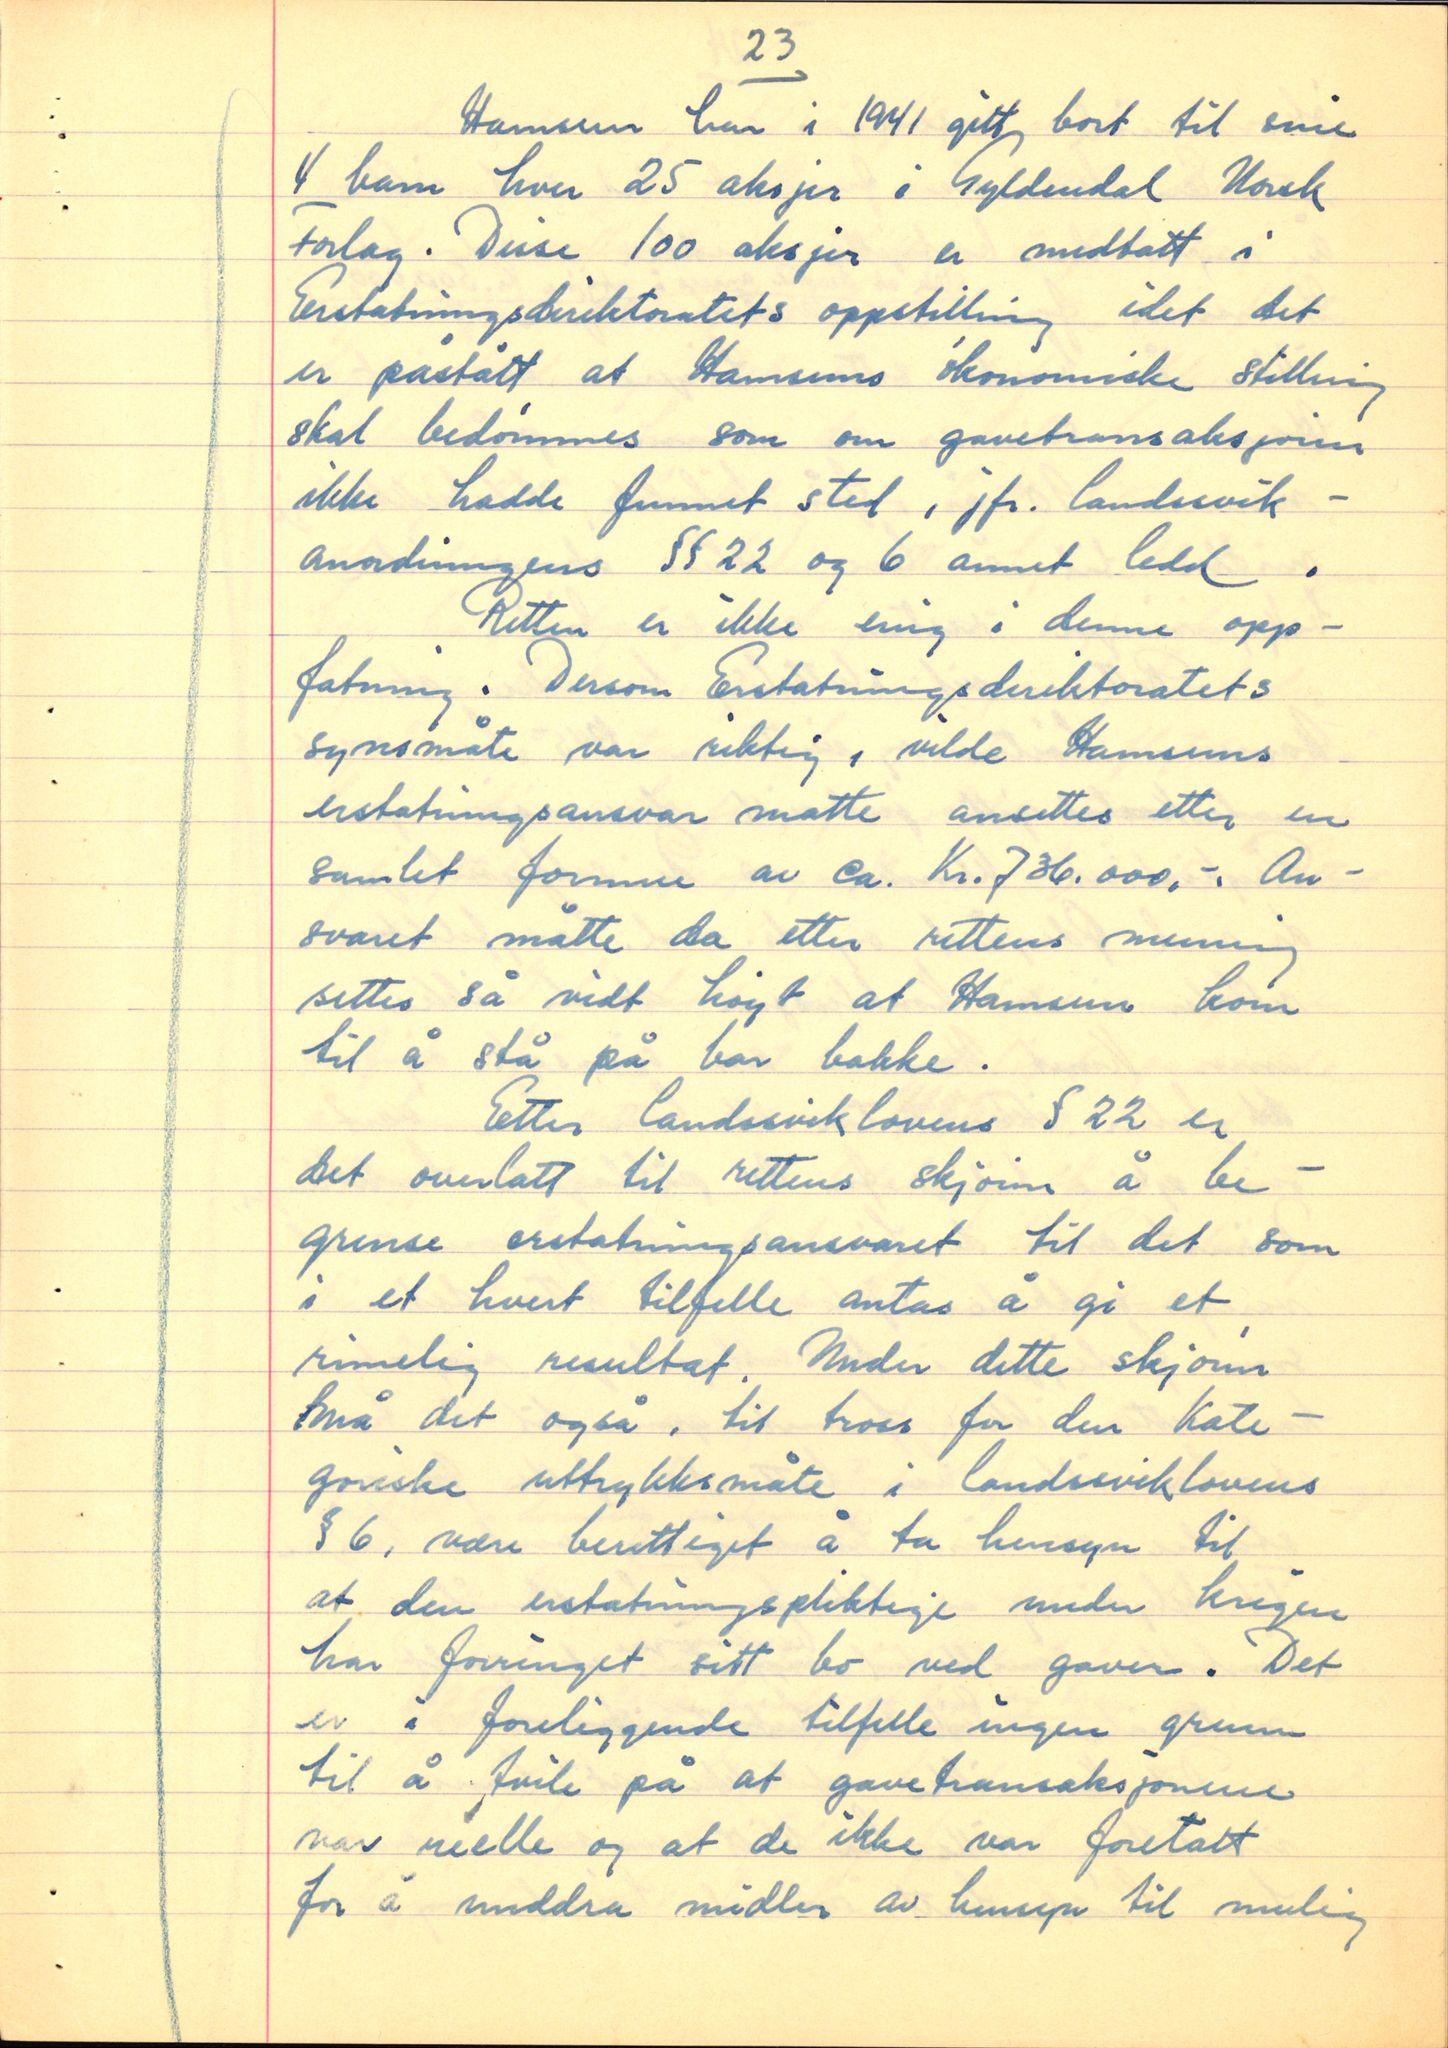 23
Hamsun har i 1941 gitt bort til sine
4 barn hver 25 aksjer i Gyldendal Norsk
Forlag. Disse 100 aksjer er medtatt i
Erstatningsdirektoratets oppstilling idet det
er påstått at Hamsuns økonomiske stilling
skal bedømmes som om gavetransaksjonen
ikke hadde funnet sted, jfr. landssvik-
anordningens §§ 22 og 6 annet ledd.
Retten er ikke enig i denne opp-
fatning. Dersom Erstatningsdirektoratets
synsmåte var riktig, vilde Hamsuns
erstatningsansvar matte ansettes etter en
samlet formue av ca. Kr. 736.000,-. An-
svaret måtte da etter rettens mening
settes så vidt høyt at Hamsun kom
til å stå på bar bakke.
Etter landssviklovens § 22 er
det overlatt til rettens skjønn å be-
grense erstatningsansvaret til det som
i et hvert tilfelle antas å gi et
rimelig resultat. Under dette skjønn
må det også, til tross for den kate-
goriske uttrykksmåte i landssviklovens
§ 6, være berettiget å ta hensyn til
at den erstatningspliktige under krigen
har forringet sitt bo ved gaver. Det
er i foreliggende tilfelle ingen grunn
til å tvile på at gavetransaksjonene
var reelle og at de ikke var foretatt
for å unddra midler av hensyn til mulig